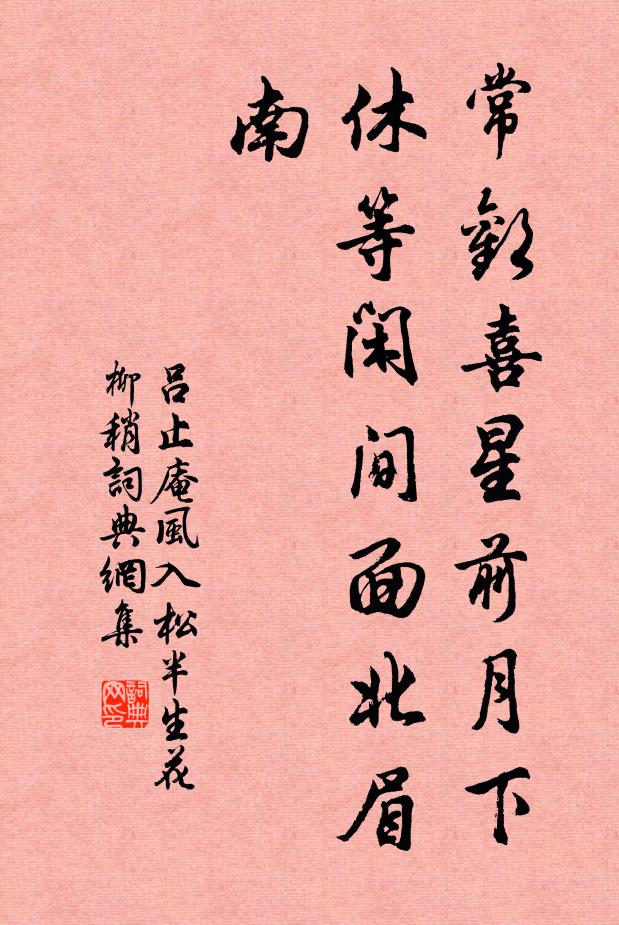 常歡喜星前月下
休等閑間面北眉
南
呂止庵風入松半生花
柳稍詞典網集
詞典網印